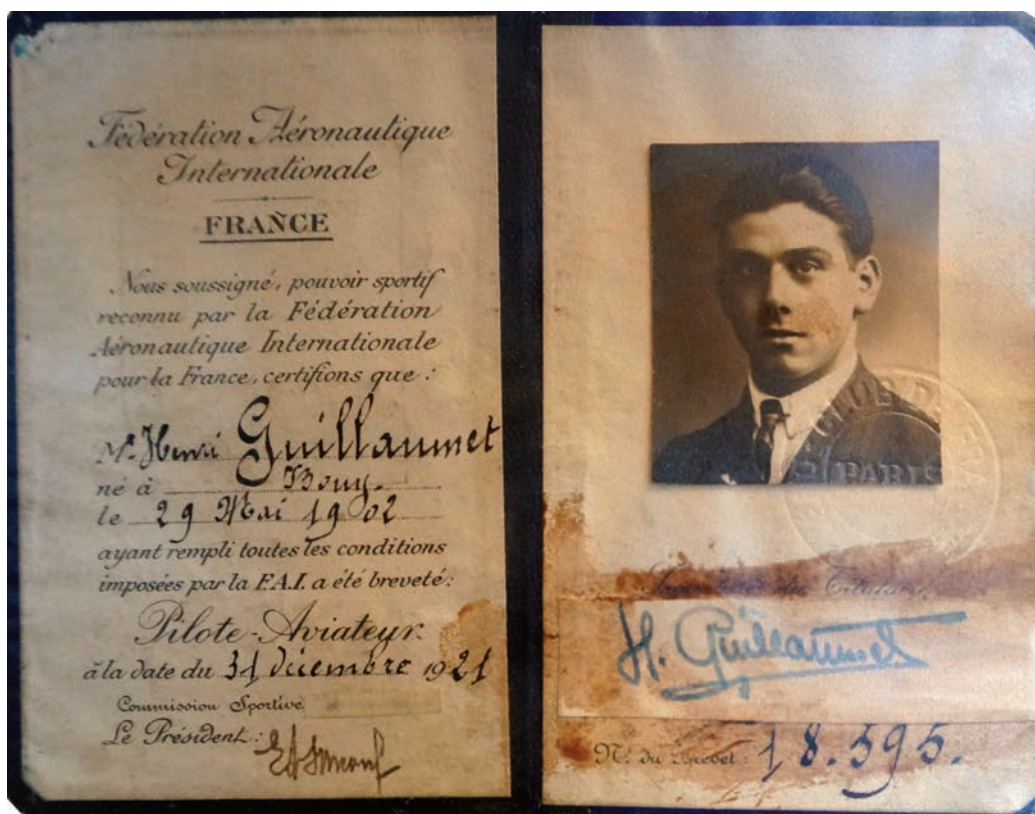 Fédération Aéronautique
Internationale
FRANCE
Nous soussigné, pouvoir sportif
reconnu par la Fédération
Aéronautique Internationale
pour la France, certifions que :
Mr Henri Guillaumet
né à Bouy.
le 29 Mai 1902
ayant rempli toutes les conditions
imposées par la F.A.I. a été breveté :
Pilote-Aviateur.
à la date du 31 décembre 1921
Commission Sportive
Le Président :
PARIS
du Titulaire
H. Guillaumet
No du Brevet : 18.595.